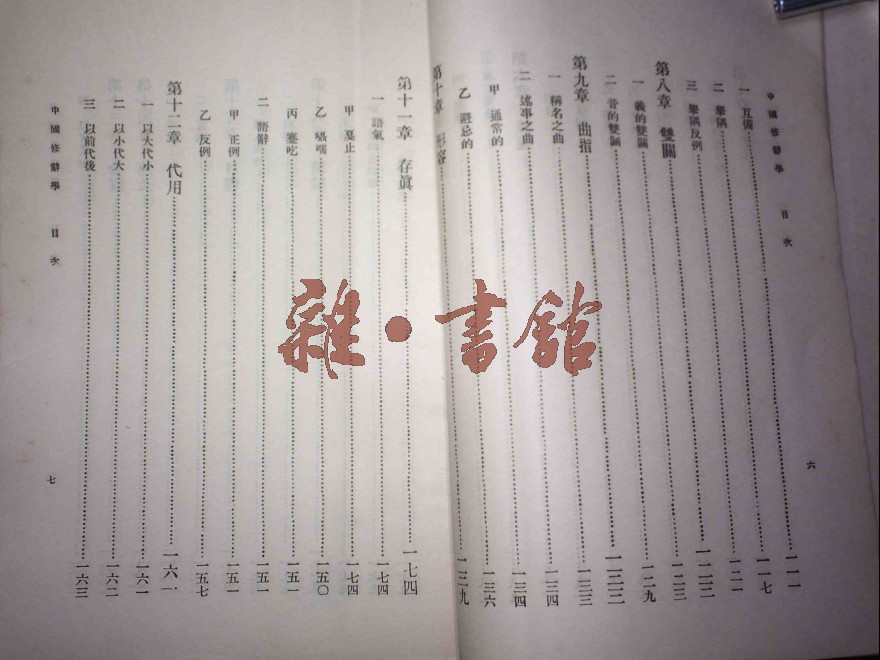 中國修辭學 目次
六
一 互備 一一一
二 舉隅 一一七
三 舉隅反例 一二一
第八章 雙關 一二二
一 義的雙關 一二三
二 音的雙關 一二九
第九章 曲指 一三二
一 稱名之曲 一三三
二 述事之曲 一三四
甲 通常的 一三四
乙 避忌的 一三六
第十章 形容 一三九
第十一章 存眞 一七四
一 語氣 一七四
甲 戛止 一七四
乙 囁嚅 一五〇
丙 蹇吃 一五一
二 語辭 一五一
甲 正例 一五一
乙 反例 一五七
第十二章 代用 一六一
一 以大代小 一六一
二 以小代大 一六二
三 以前代後 一六三
中國修辭學 目次
七
雜·書舘